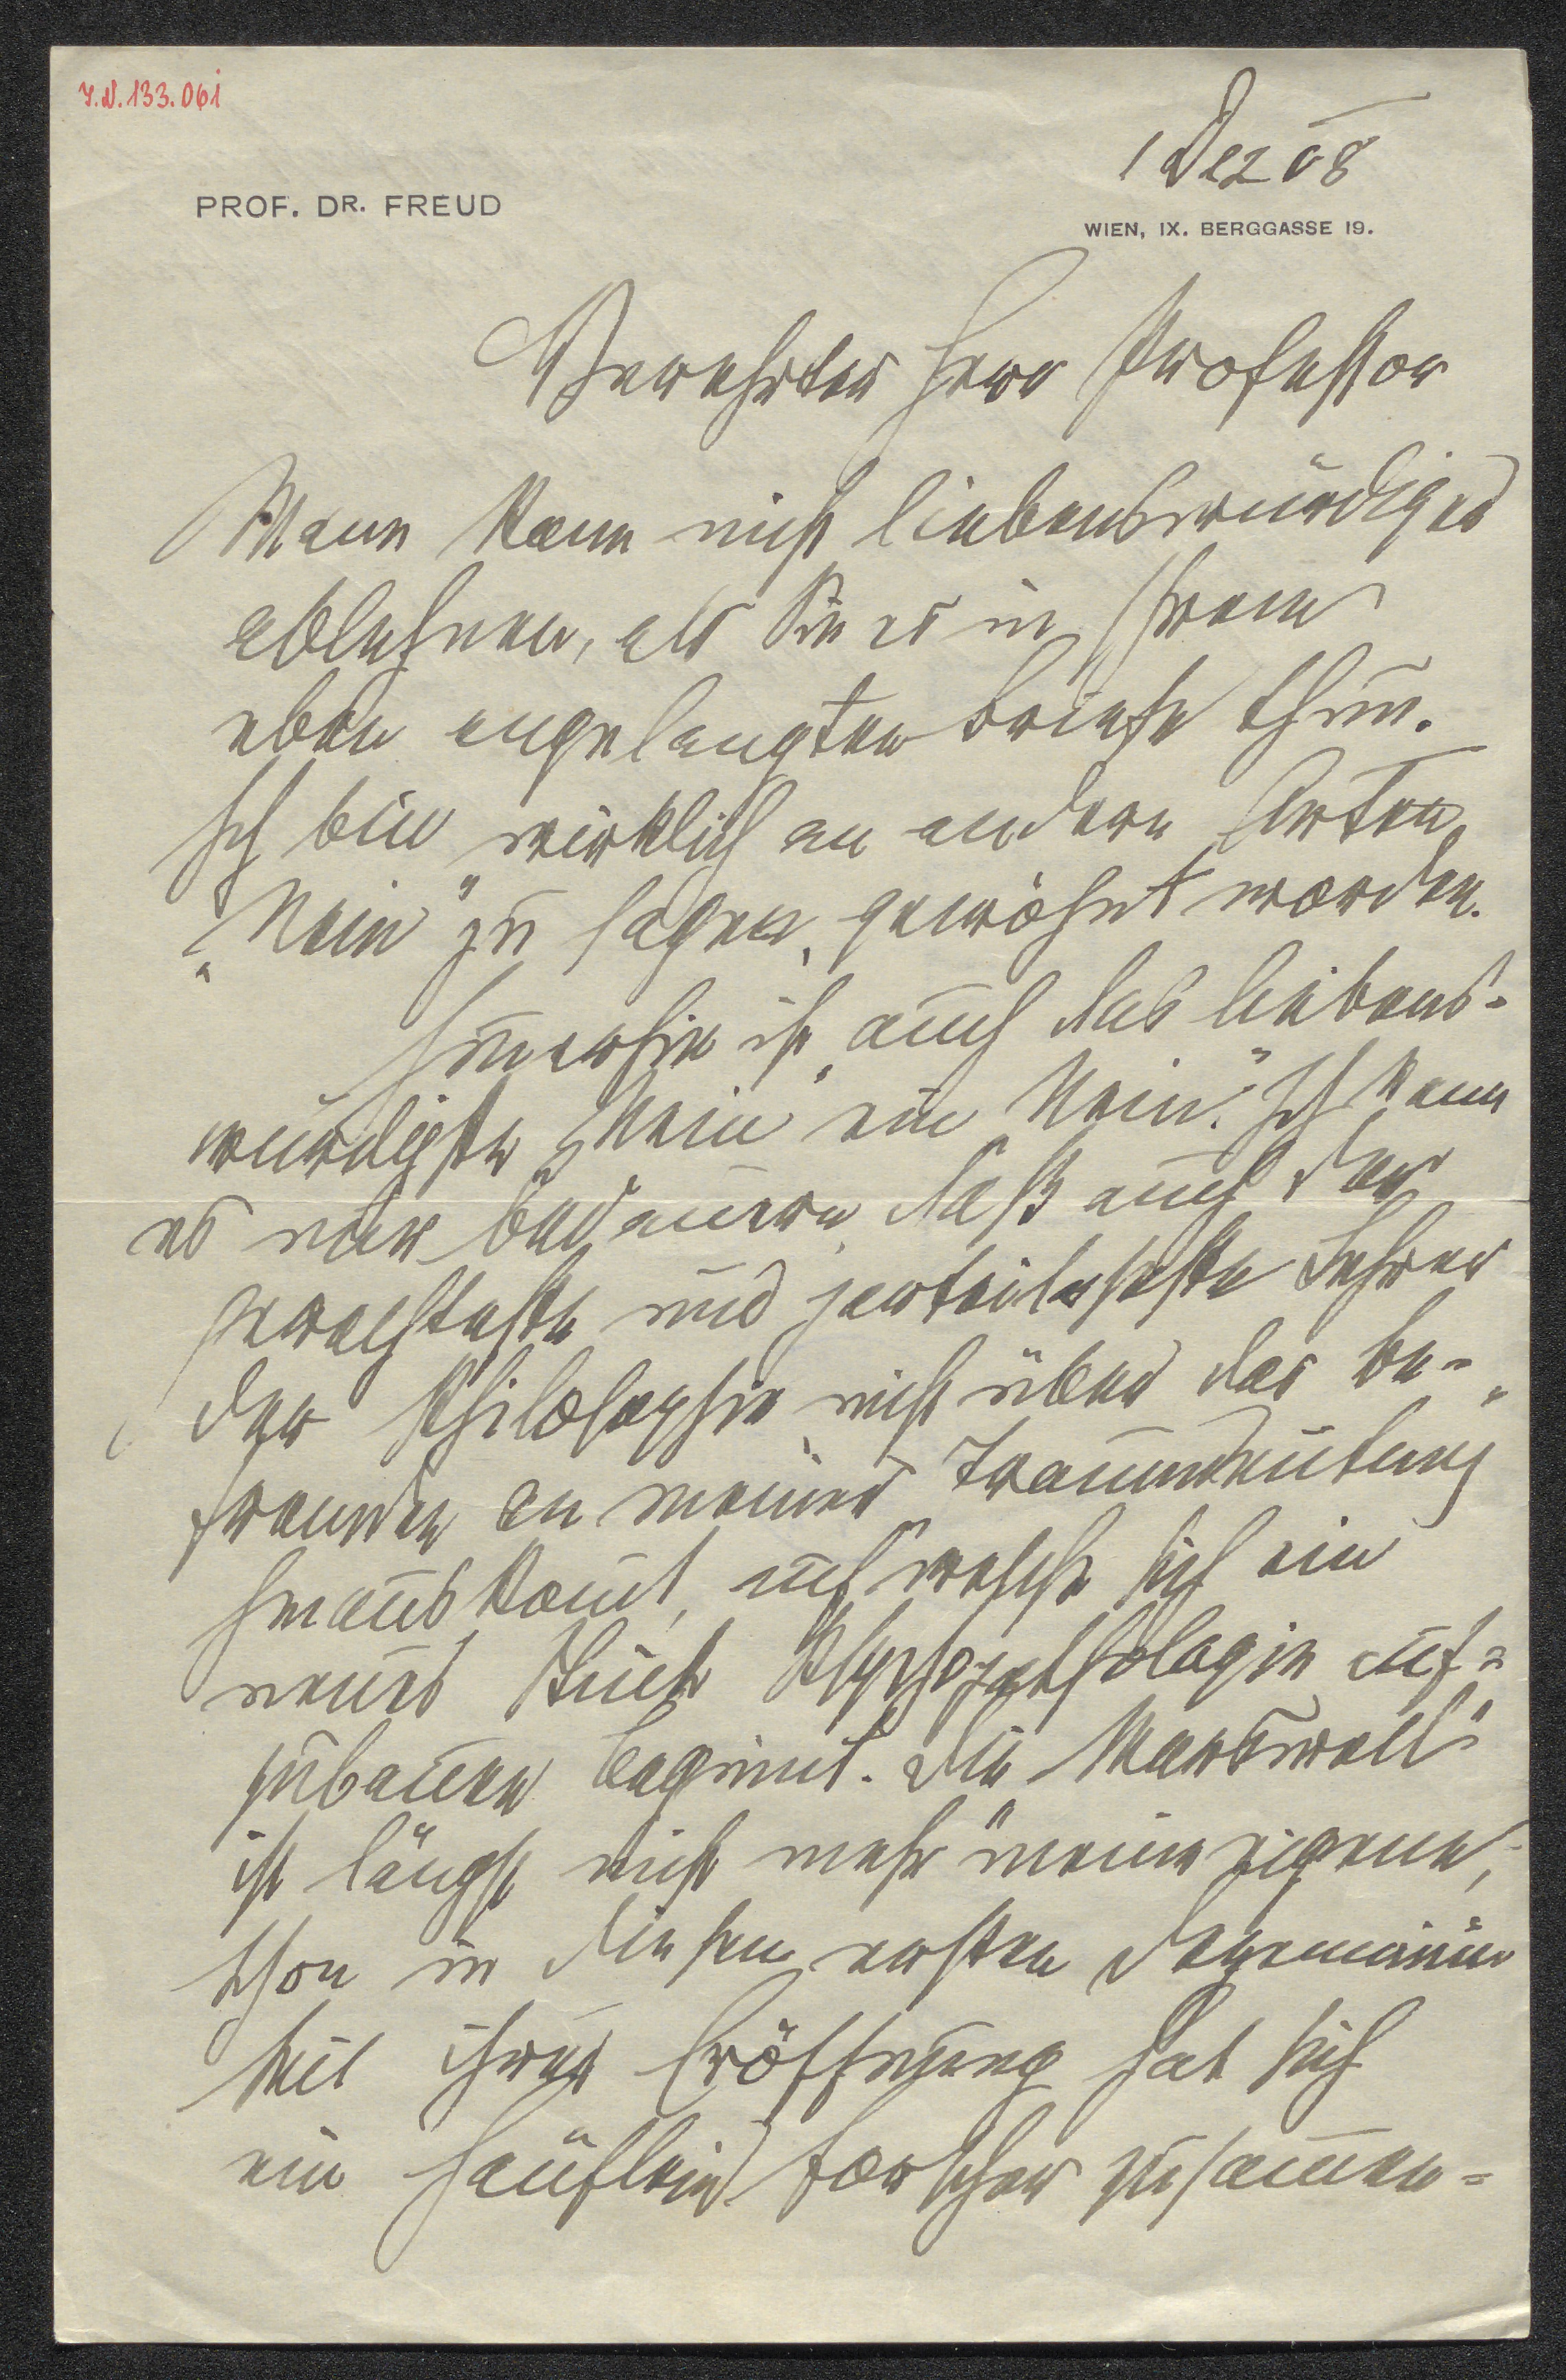 I.N. 133.061
1 Dez 08
PROF. DR. FREUD
WIEN, IX. BERGGASSE 19.
Verehrter Herr Professor
Mann kann nicht liebenswürdiger
ablehnen, als Sie es in Ihrem
eben angelangten Briefe thun.
Ich bin wirklich an andere Arten
„Nein“ zu sagen, gewöhnt worden.
Im̄erhin ist auch das liebens-
würdigste „Nein“ ein „Nein.“ Ich kann
es nur bedauern, daß auch der
und Lehrer
der Philosophie nicht über das Be-
fremden an meiner „Traumdeutung“
hinauskom̄t, auf welche sich ein
neues Stück Psychopathologie auf-
zubauen begin̄t. Die
ist längst nicht mehr meine eigene,
schon in diesem ersten Dezennium
seit ihrer Eröffnung hat sich
ein Häuflein Forscher zusam̄en-